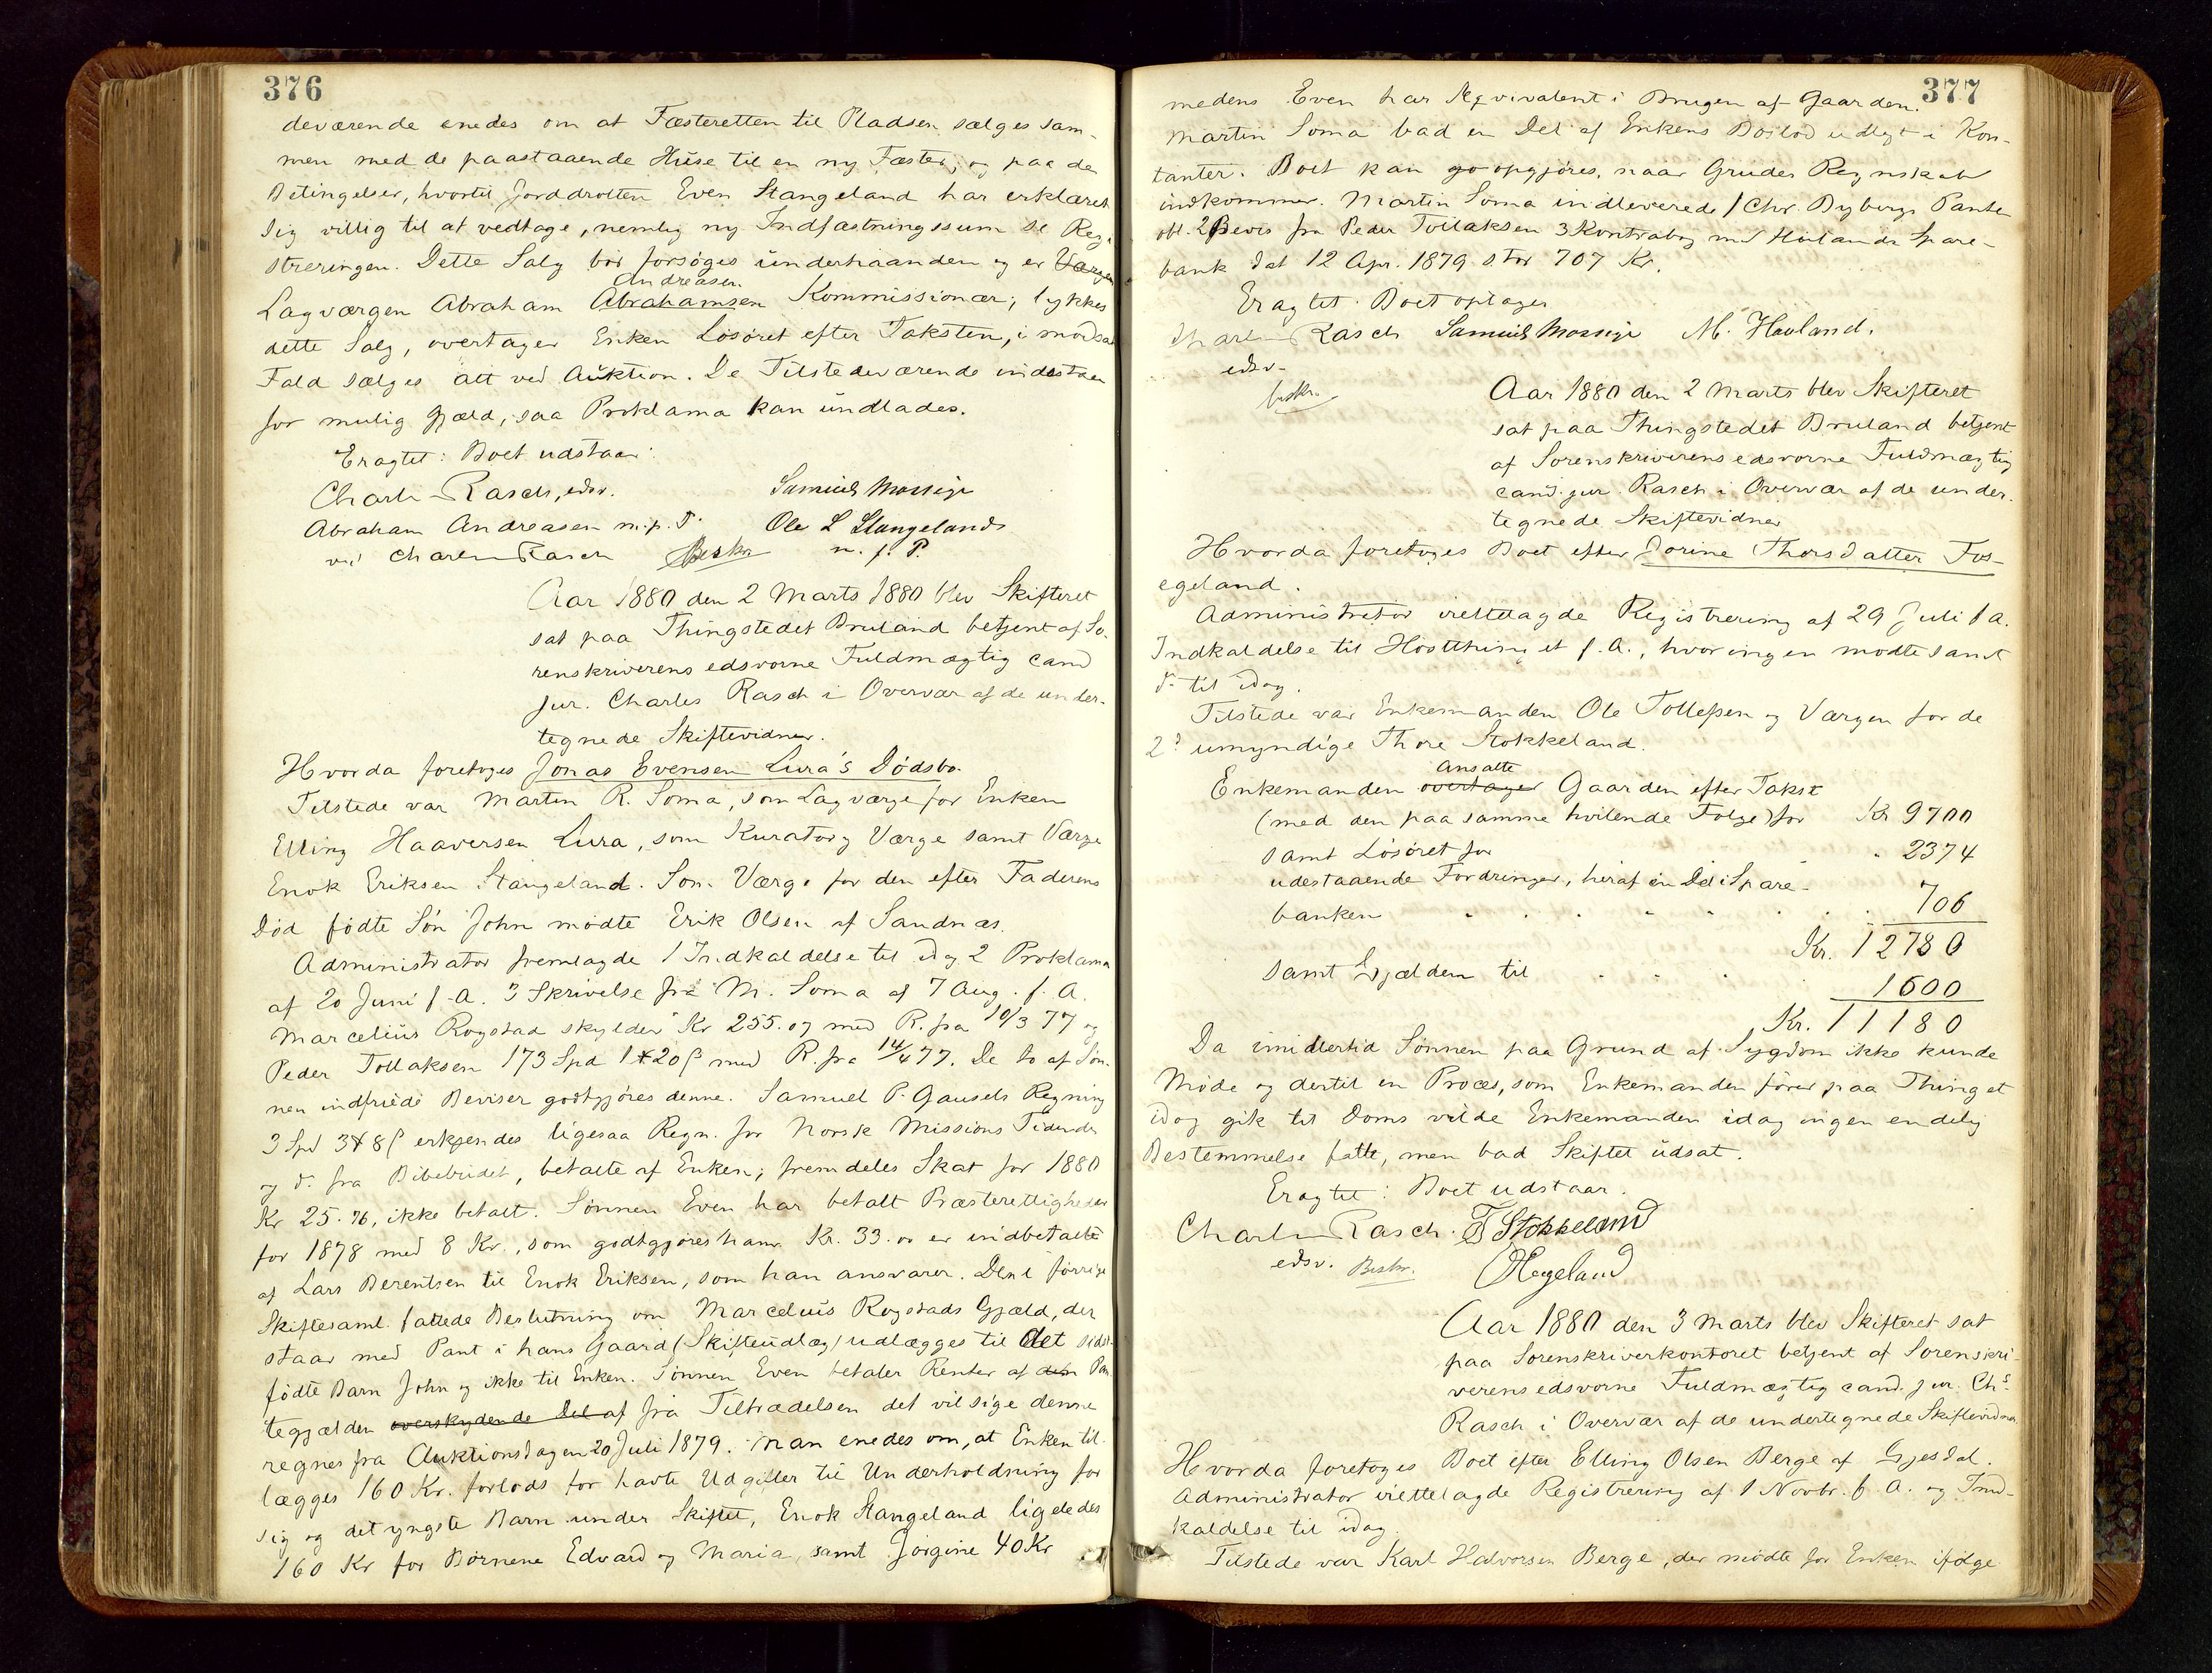 376
deværende enedes om at Fæsteretten til Pladsen sælges sam-
men med de paastaaende Huse til en ny Fæster, og paa de
Betingelser, hvortil Jorddrotten Even Stangeland har erklæret
sig villig til at vedtage, nemlig ny Indfæstningssum se Regi
streringen. Dette Salg bør forsøges underhaanden og er Værgen
Andreasen
Lagværgen Abraham Abrahamsen Kommissionær; lykkes
dette Salg, overtager Enken Løsøret efter Taksten, i modsat
Fald sælges alt ved Auktion. De Tilstedeværende indestaar
for mulig Gjæld, saa Proklama kan undlades.
Eragtet: Boet udstaar.
Charles Rasch, edsv. Samuel Mossige
Abraham Andreasen m.p.P. Ole L Stangeland
ved Charles Rasch Beskr m. f. P.
Aar 1880 den 2 Marts 1880 blev Skifteret
sat paa Thingstedet Bruland betjent af So-
renskriverens edsvorne Fuldmægtig cand
jur. Charles Rasch i Overvær af de under-
tegnede Skiftevidner.
Hvorda foretoges Jonas Evensen Lura's Dødsbo.
Tilstede var Martin R. Soma, som Lagværge for Enken
Elling Haaversen Lura, som Kurator og Værge samt Værge
Enok Eriksen Stangeland. Som Værge for den efter Faderens
Død fødte Søn John mødte Erik Olsen af Sandnæs.
Administrator fremlagde 1 Indkaldelse til idag 2 Proklama
af 20 Juni f. A. 3 Skrivelse fra M. Soma af 7 Aug. f. A.
Marcelius Rogstad skylder Kr 255.07 med R. fra 10/3 77 og
Peder Tollaksen 173 Spd 1 # 20 ß med R. fra 14/4 77. De to af Søn-
nen indfriede Beviser godtgjøres denne. Samuel P. Gausels Regning
3 Spd 3 # 8 ß erkjendes ligesaa Regn. for Norsk Missions Tidende
og do fra Bibebudet, betalte af Enken; fremdeles Skat for 1880
Kr 25.76, ikke betalt. Sønnen Even har betalt Præsterettigheder
for 1878 med 8 Kr., som godtgjøres ham. Kr. 33.00 er indbetalte
af Lars Berentsen til Enok Eriksen, som han ansvarer. Den i forrige
Skiftesaml. fattede Beslutning om Marcelius Rogstads Gjæld, der
staar med Pant i hans Gaard (Skifteudlæg) udlægges til det sidst
fødte Barn John og ikke til Enken. Sønnen Even betaler Renter af den Pan
tegjælden overskydende Del af fra Tiltrædelsen det vil sige denne
regnes fra Auktionsdagen 20 Juli 1879. Man enedes om, at Enken til-
lægges 160 Kr. forlods for havte Udgifter til Underholdning for
sig og det yngste Barn under Skiftet, Enok Stangeland ligeledes
160 Kr for Børnene Edvard og Maria, samt Jørgine 40 Kr
377
medens Even har Æqvivalent i Brugen af Gaarden.
Martin Soma bad en Del af Enkens Boslod udlagt i Kon-
tanter. Boet kan go opgjøres, naar Grudes Regnskab
indkommer. Martin Soma indleverede 1 Chr. Bybergs Pante
obl. 2 Bevis fra Peder Tollaksen 3 Kontrabog med Høilands Spare-
bank dat 12 Apr. 1879 stor 707 Kr.
Eragtet: Boet optages
Charles Rasch Samuel Mossige M. Hauland.
edsv.
beskr.
Aar 1880 den 2 Marts blev Skifteret
sat paa Thingstedet Bruland betjent
af Sorenskriverens edsvorne Fuldmægtig
cand. jur. Rasch i Overvær af de under-
tegnede Skiftevidner
Hvorda foretoges Boet efter Dorine Thorsdatter Fos-
egeland.
Administrator irettelagde Registrering af 29 Juli f A.
Indkaldelse til Høstthinget f. A., hvor ingen mødte samt
do til idag.
Tilstede var Enkemanden Ole Tollefsen og Værgen for de
2de umyndige Thore Stokkeland.
Ansatte
Enkemanden overtager Gaarden efter Takst
(med den paa samme hvilende Følge) for Kr 9700
samt Løsøret for " 2374
udestaaende Fordringer, heraf en Del i Spare-
banken . . . . . . 706
Kr. 12780
samt Gjælden til . . . 1600
Kr. 11180
Da imidlertid Sønnen paa Grund af Sygdom ikke kunde
Møde og dertil en Proces, som Enkemanden fører paa Thinget
idag gik til Doms vilde Enkemanden idag ingen endelig
Bestemmelse fatte, men bad Skiftet udsat.
Eragtet: Boet udstaar.
Charles Rasch. T Stokkeland
edsv. Beskr. Hegeland
Aar 1880 den 3 Marts blev Skifteret sat
paa Sorenskriverkontoret betjent af Sorenskri-
verens edsvorne Fuldmægtig cand. jur. Chs.
Rasch i Overvær af de undertegnede Skiftevidner
Hvorda foretoges Boet efter Elling Olsen Berge af Gjesdal.
Administrator irettelagde Registrering af 1 Novbr. f A. og Ind-
kaldelse til idag.
Tilstede var Karl Halvorsen Berge, der mødte for Enken ifølge